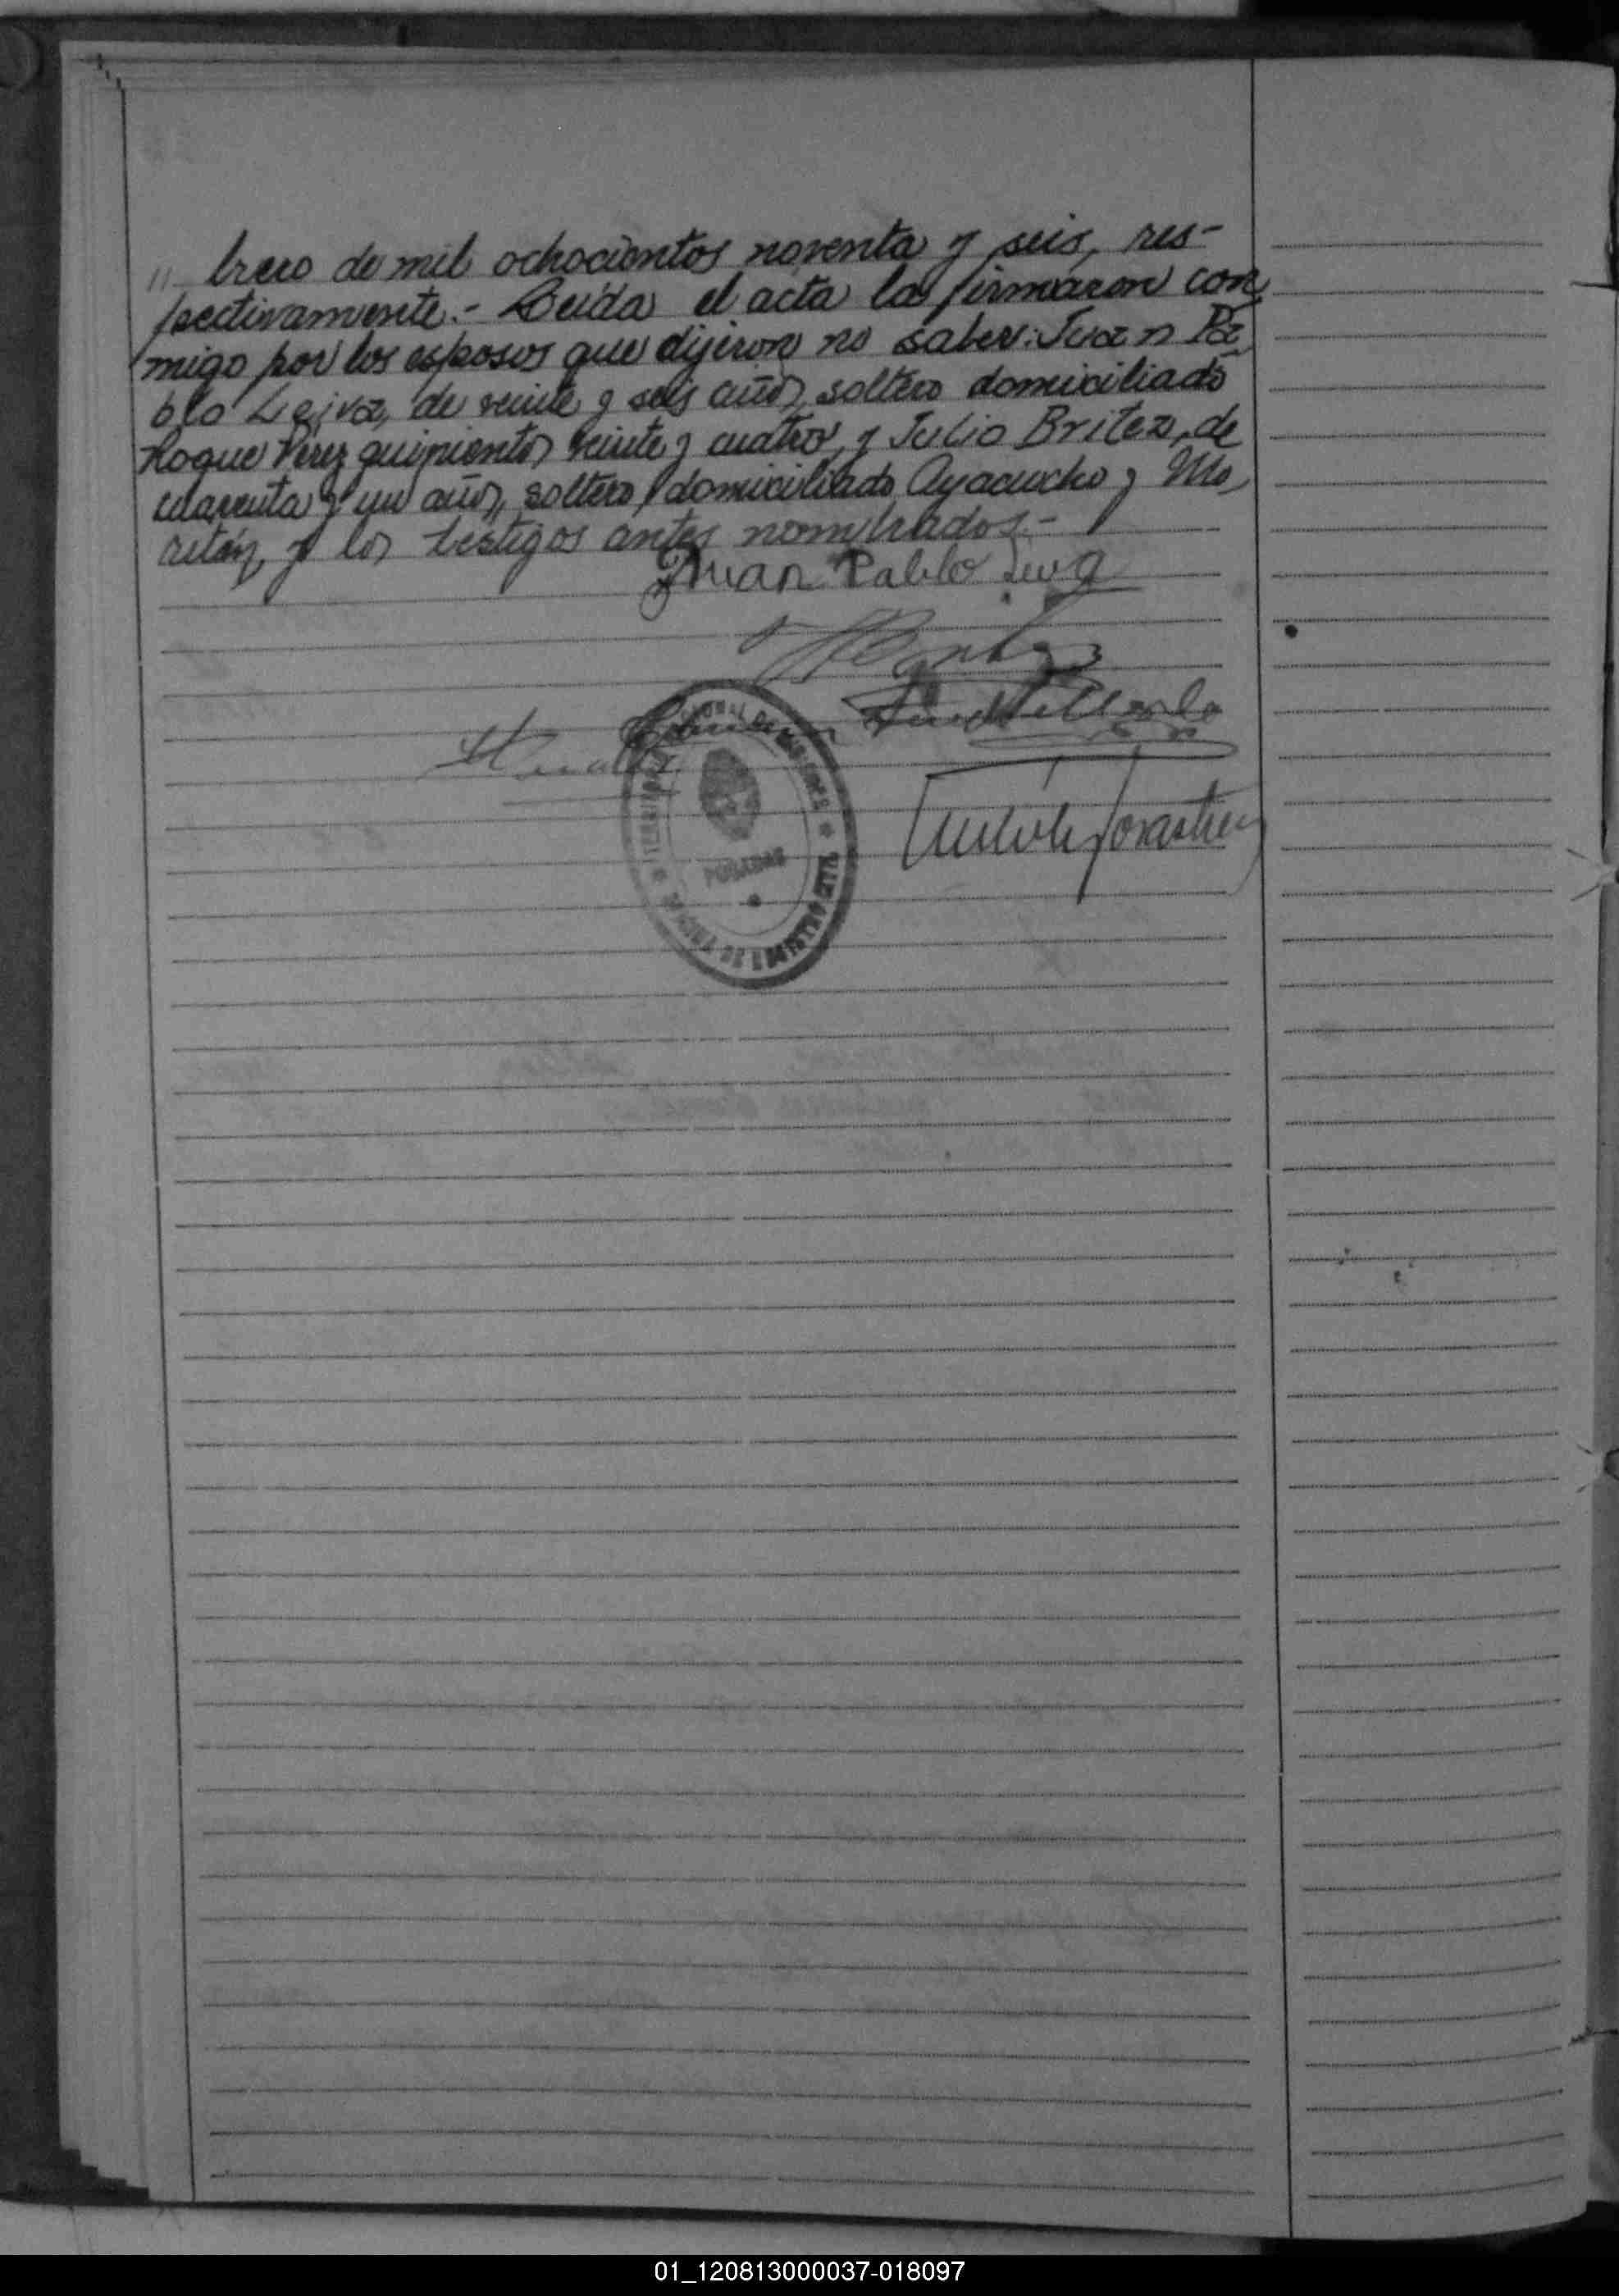 " brero de mil ochocientos noventa y seis, res-
pectivamente.- Leida el acta la firmaron con,
migo por los esposos que dijeron no saber: Juan Pa,
blo Leiva, de veinte y seis años, soltero domiciliado
Roque Perez quinientos veinte y cuatro, y Julio Britez, de
cuarenta y un años, soltero, domiciliado Ayacucho y Mo,
ritán, y los testigos antes nombrados.-
Juan Pablo Leiva
POSADAS
OFICINA DE REGISTRO CIVIL
01_120813000037-018097